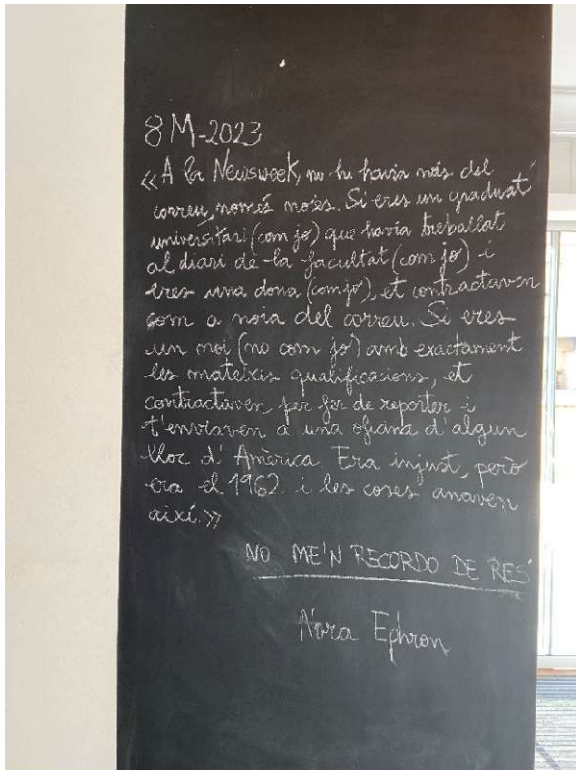 8M-2023
«A la Newsweek, no hi havia nois del
correu, només noies. Si eres un graduat
universitari (com jo) que havia treballat
al diari de la facultat (com jo) i
eres una dona (com jo), et contractaven
com a noia del correu. Si eres
un noi (no com jo) amb exactament
les mateixes qualificacions, et
contractaven per fer de reporter i
t'enviaven a una oficina d'algun
lloc d'Amèrica. Era injust, però
era el 1962 i les coses anaven
així.»
NO ME'N RECORDO DE RES
Nora Ephron